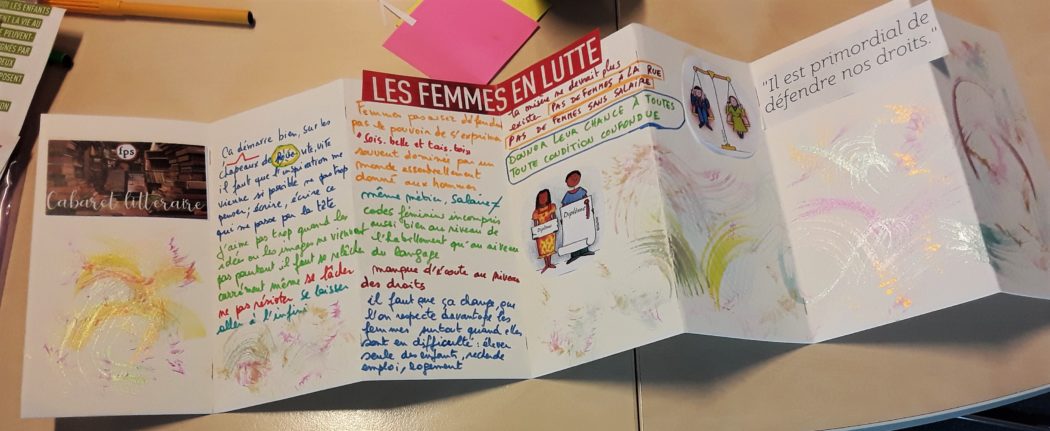 DI LES ENFANTS
ENT LA VIE AU
E PEUVENT-
IGNÉS PAR
DEUX
POSENT
ION
fps
Cabaret littéraire
Ça démarre bien, sur les
chapeaux de roue vite, vite
il faut que l'inspiration me
vienne si possible ne pas trop
penser; écrire, écrire ce
qui me passe par la tête
j'aime pas trop quand les
idées ou les images ne viennent
pas pourtant il faut se relâcher
carrément même se lâcher
ne pas résister se laisser
aller à l'infini
LES FEMMES EN LUTTE
Femmes pas assez défendues
pas le pouvoir de s'exprimer
"sois belle et tais-toi"
souvent dominées par un
monde essentiellement
donné aux hommes
même métier, salaire ≠
codes féminins incompris
aussi bien au niveau de
l'habillement qu'au niveau
du langage
manque d'écoute au niveau
des droits
il faut que ça change, que
l'on respecte davantage les
femmes surtout quand elles
sont en difficulté : élever
seule des enfants, recherche
emploi, logement
la misère ne devrait plus
exister PAS DE FEMMES À LA RUE
PAS DE FEMMES SANS SALAIRE
DONNER LEUR CHANCE À TOUTES
TOUTE CONDITION CONFONDUE
Diplôme
Diplôme
"Il est primordial de
défendre nos droits."